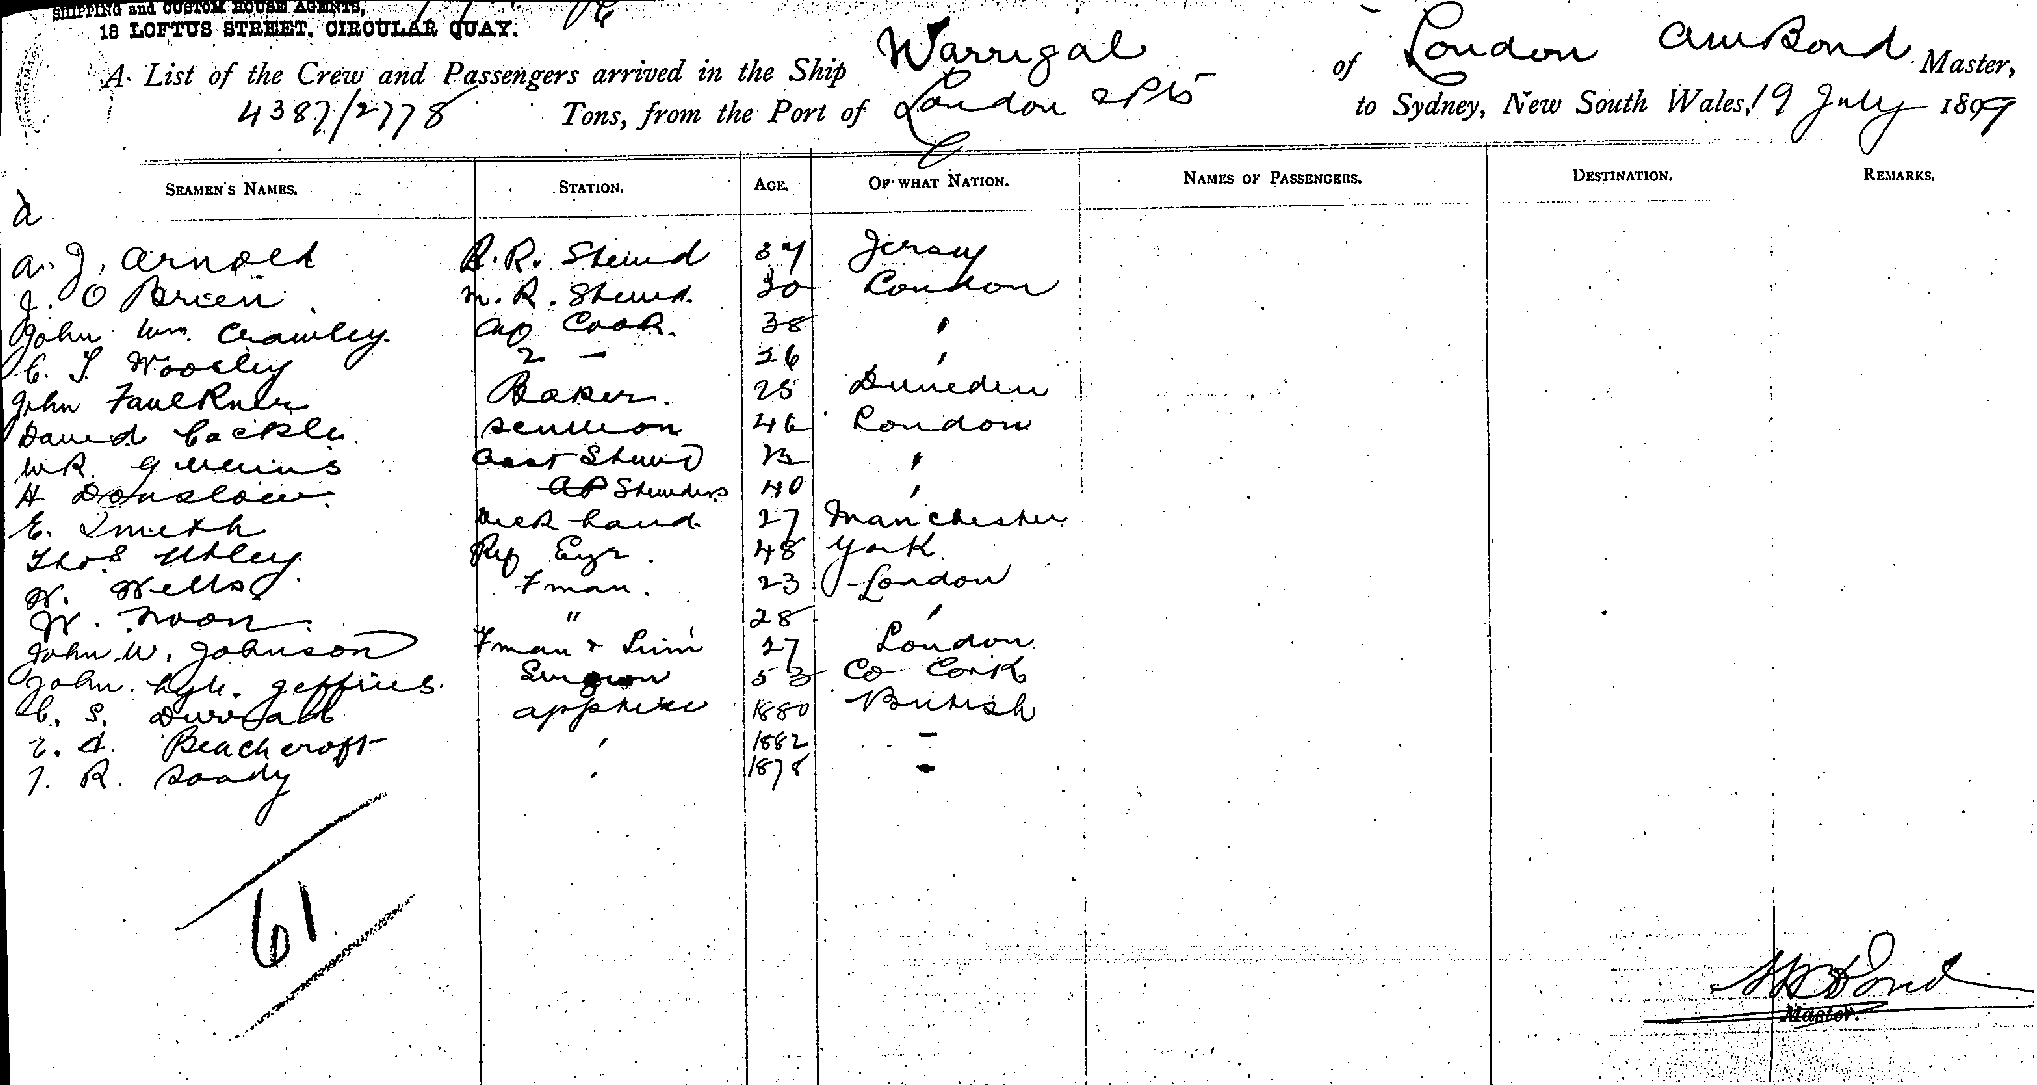 SHIPPING and CUSTOM HOUSE AGENTS,
18 LOFTUS STREET, CIRCULAR QUAY.
A List of the Crew and Passengers arrived in the Ship Warrigal of London AW Bond Master,
4387/2778 Tons, from the Port of London & Pts to Sydney, New South Wales, 19 July 1899
SEAMEN'S NAMES. STATION. AGE. OF WHAT NATION. NAMES OF PASSENGERS. DESTINATION. REMARKS.
A. J. Arnold B. R. Stewd 37 Jersey
J. O Brien M. R. Stewd. 30 London
John Wm. Crawley. Cook. 38 "
C. Woolley 2 - 26 "
John Faulkner Baker. 25 Dunedin
David Cackle. 46 London
W R. Asst Stewd 23 "
H Denslow. Stewdess 40 "
E. Smith Deck hand. 27 Manchester
Thos Utley Rfg Egr. 48 York
W. Wells Fman. 23 London
W. Noon. " 28 "
John W. Johnson Fman & Trim 27 London
John Lyle. Jeffries. Surgeon 53 Co Cork
C. S. 1880 British
Beachcroft ' 1882 -
T. R. Soady ' 1878 -
61
Bond
Master.